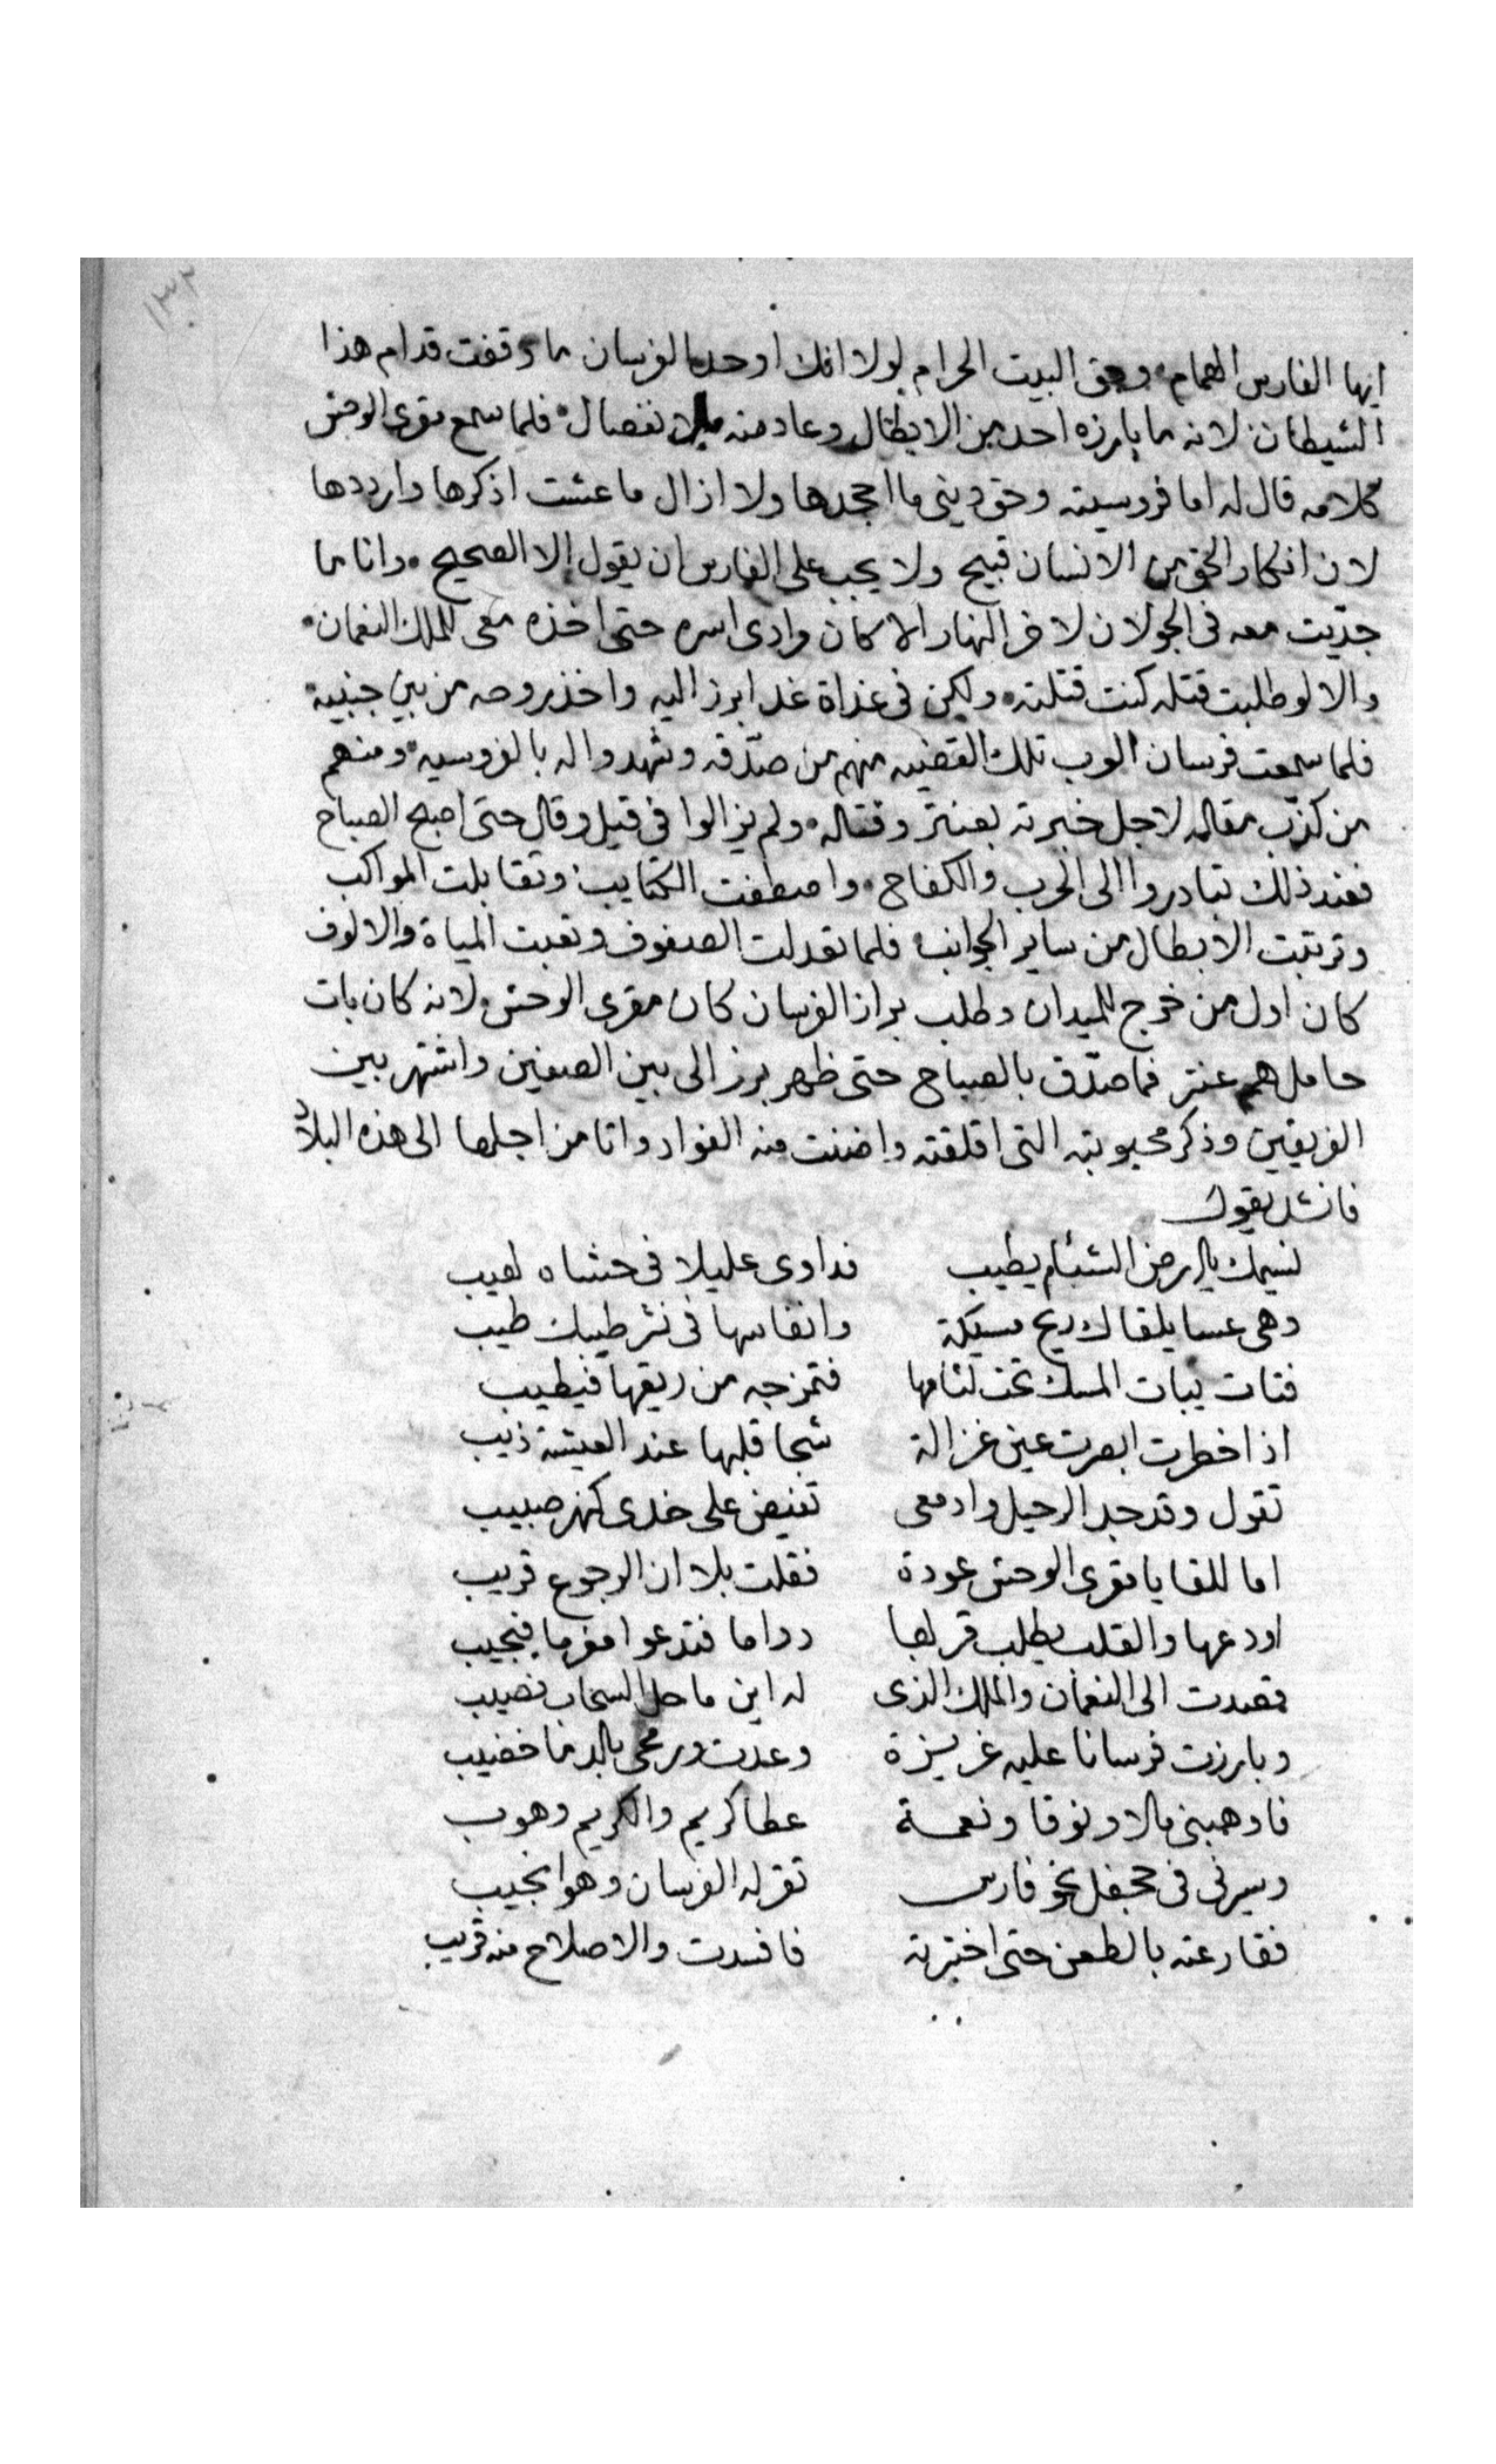 ١٣٢
ايها الفارس الهمام وحق البيت الحرام لولا انك اوحد الفرسان ما وقفت قدام هذا
الشيطان لانه ما بارزه احد من الابطال وعاد منه بلا تفصال فلما سمع مقرى الوحش
كلامه قال له اما فروسيته وحق ديني ما اجحدها ولا ازال ما عشت اذكرها وارددها
لان انكار الحق من الانسان قبيح ولا يجب على الفارس ان يقول الا الصحيح وانا ما
جدّيت معه فى الجولان لاخر النهار الا كان مرادى اسره حتى اخذه معى للملك النعمان
والا لو طلبت قتله كنت قتلته ولكن فى غداة غد ابرز اليه واخذ روحه من بين جنبيه
فلما سمعت فرسان العرب تلك القضيه منهم من صدّقه وشهدوا له بالفروسيه ومنهم
من كذّب مقاله لاجل خبرته بعنتر وقتاله ولم يزالوا فى قيل وقال حتى اصبح الصباح
فعند ذلك تبادروا الى الحرب والكفاح واصطفت الكتايب وتقابلت المواكب
وترتبت الابطال من ساير الجوانب فلما تعدلت الصفوف وتعبت المياة والالوف
كان اول من خرج للميدان وطلب براز الفرسان كان مقرى الوحش لانه كان بات
حامل هم عنتر فما صدّق بالصباح حتى ظهر برز الى بين الصفين واشتهر بين
الفريقين وذكر محبوبته التى اقلقته واضنت منه الفواد واتا من اجلها الى هذه البلاد
فانشد يقول
نسيمك يا ارض الشئام يطيب فداوى عليلا فى حشاه لهيب
وهى عسا يلقاك ريح مسيكة وانفاسها فى نشر طيبك طيب
فتات يبات المسك تحت لثامها فتمزجه من ريقها فيطيب
اذا خطرت ابصرت عين غزالة شجا قلبها عند العيشة ذيب
تقول وقد جد الرحيل وادمعى تفيض على خدى كنهر صبيب
اما للقا يا مقرى الوحش عودة فقلت بلا ان الرجوع قريب
اودعها والقلب يطلب قربها دواما فتدعوا مغرما فيجيب
قصدت الى النعمان والملك الذى له اين ما حل السحاب نصيب
وبارزت فرسانا عليه عزيزة وعدت ورمحى بالدما خضيب
فاوهبنى مالا ونوقا ونعمة عطا كريم والكريم وهوب
وسيرنى فى جحفل نحو فارس تقر له الفرسان وهوا نجيب
فقارعته بالطعن حتى اختبرته فافسدت والاصلاح منه قريب